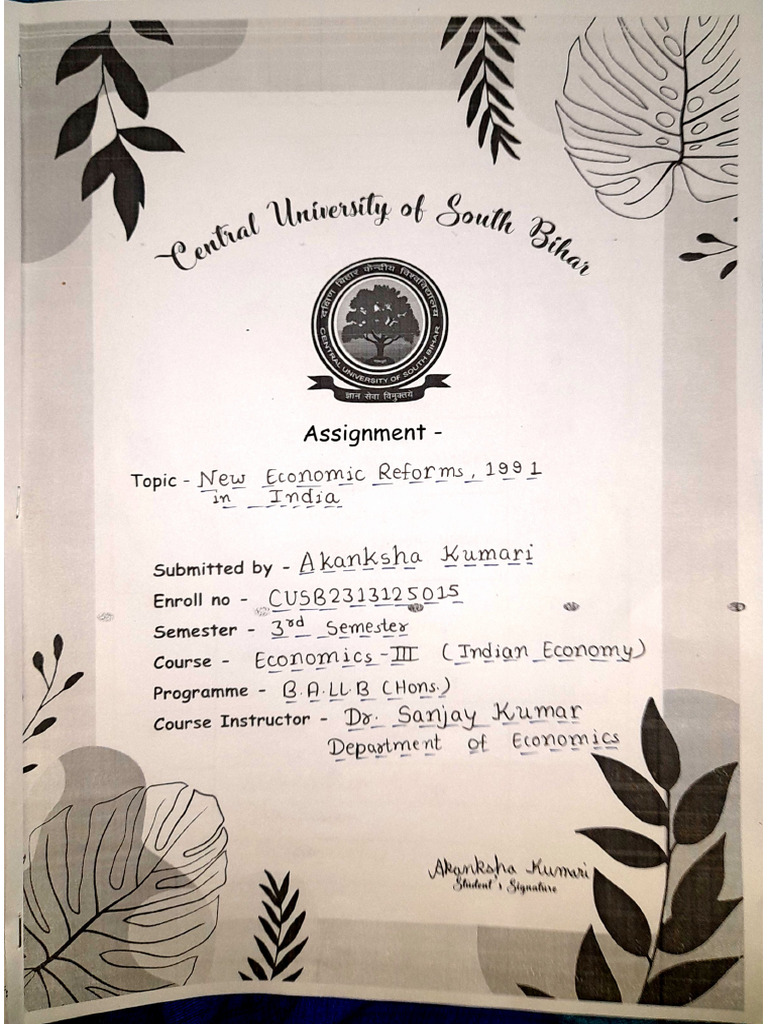 Central University of South Bihar
दक्षिण बिहार केन्द्रीय विश्वविद्यालय
CENTRAL UNIVERSITY OF SOUTH BIHAR
ज्ञान सेवा विमुक्तये
Assignment -
Topic - New Economic Reforms, 1991
in India
Submitted by - Akanksha Kumari
Enroll no - CUSB2313125015
Semester - 3rd Semester
Course - Economics-III (Indian Economy)
Programme - B.A.LL.B (Hons.)
Course Instructor - Dr. Sanjay Kumar
Department of Economics
Akanksha Kumari
Student's Signature